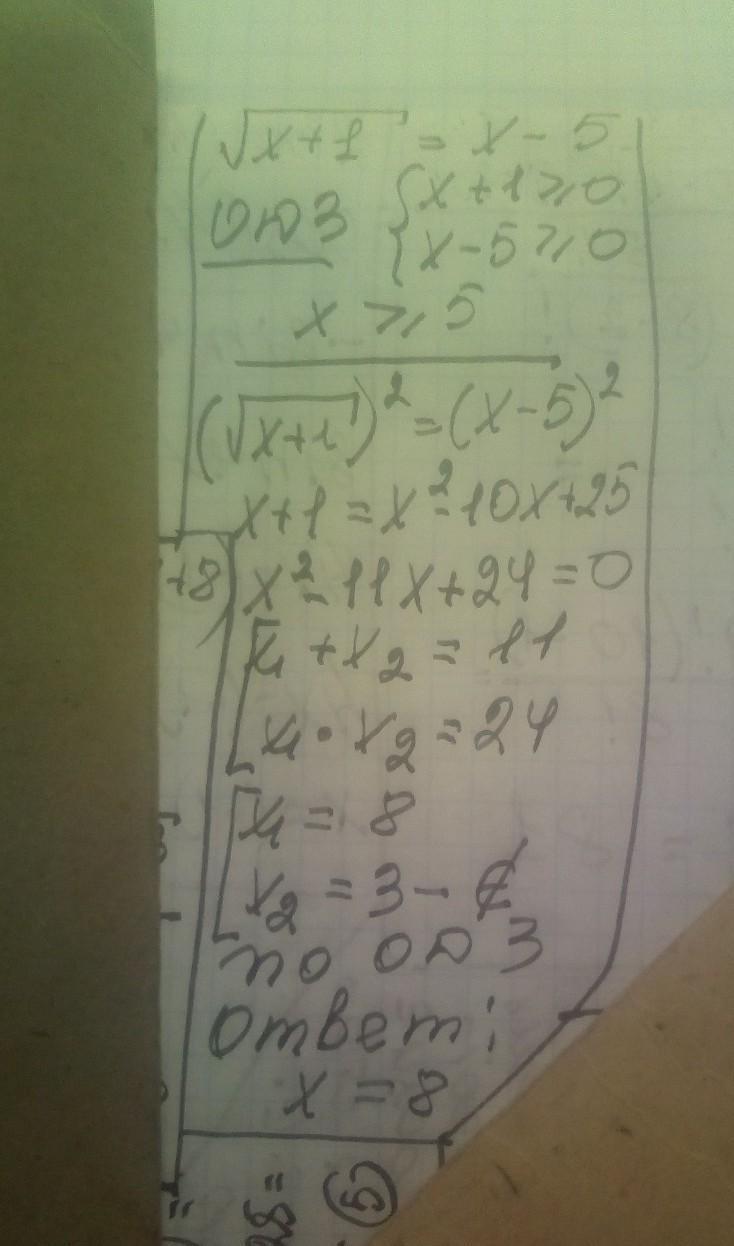 √(x+1) = x - 5
ОДЗ { x + 1 ≥ 0
{ x - 5 ≥ 0
x ≥ 5
(√(x+1))² = (x-5)²
x+1 = x² - 10x + 25
x² - 11x + 24 = 0
[ x₁ + x₂ = 11
[ x₁ · x₂ = 24
[ x₁ = 8
[ x₂ = 3 - ∉
по ОДЗ
Ответ:
x = 8
+8)
28=
(5)